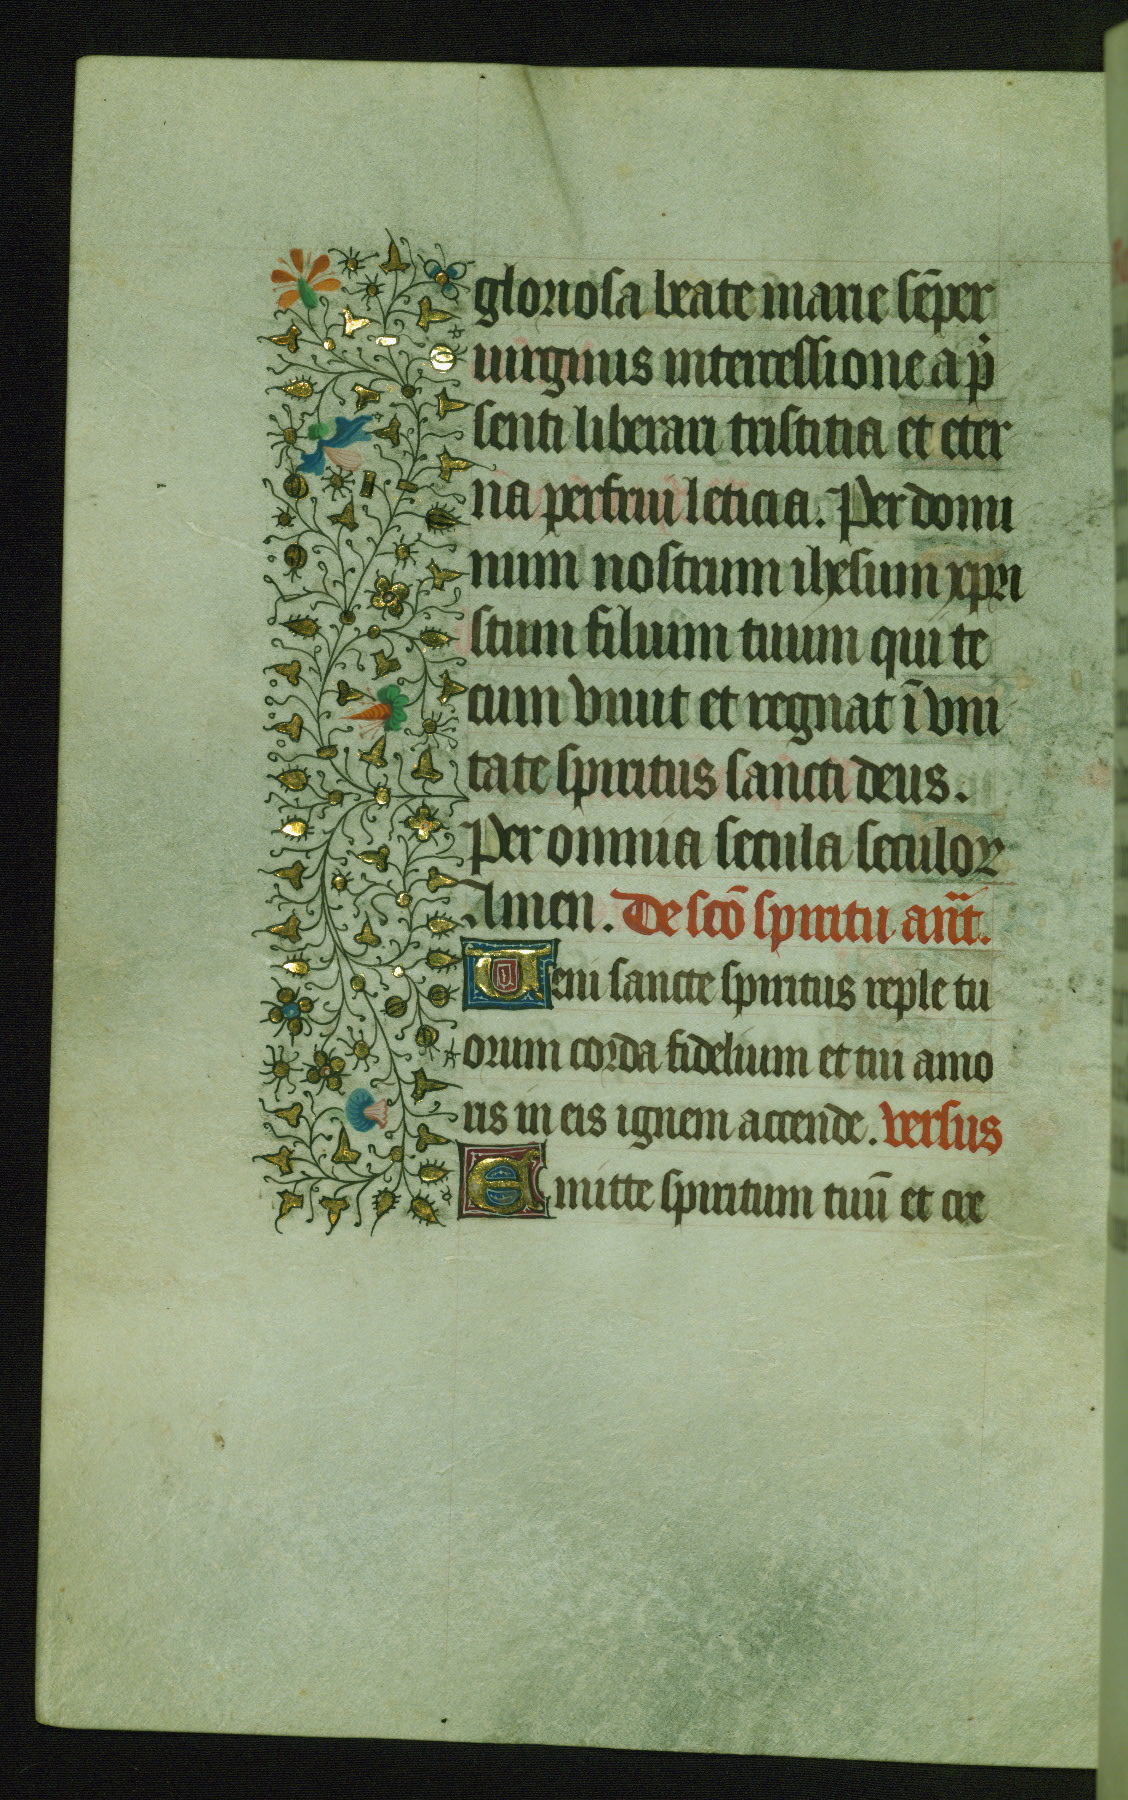 gloriosa beate marie sēper
uirginis intercessione a p̄
senti liberari tristitia et eter
na perfrui leticia. Per domi
num nostrum ihesum xpri
stum filium tuum qui te
cum viuit et regnat ī vni
tate spiritus sancti deus.
Per omnia secula seculoꝝ
Amen. De scō spiritu an̄t.
Ueni sancte spiritus reple tu
orum corda fidelium et tui amo
ris in eis ignem accende. versus
Emitte spiritum tuū et cre